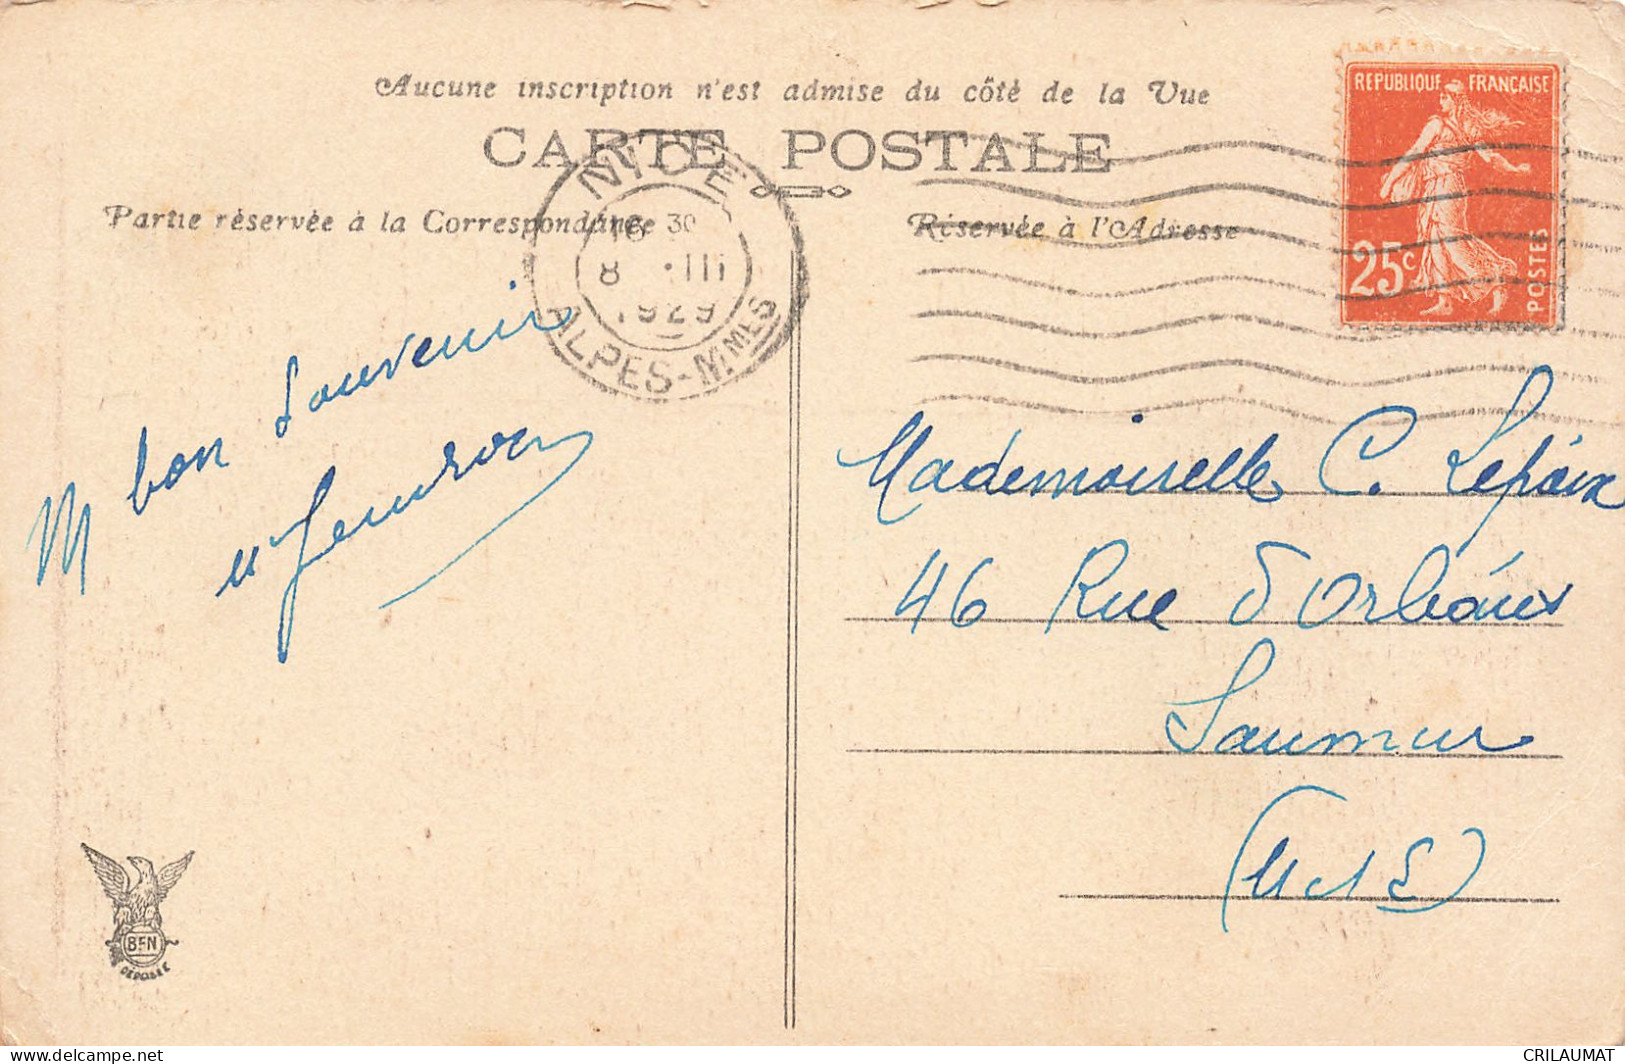 Aucune inscription n'est admise du côté de la Vue
CARTE POSTALE
Partie réservée à la Correspondance
Réservée à l'Adresse
REPUBLIQUE FRANÇAISE
25c
POSTES
NICE
16 30
8 .III
1929
ALPES-MMES
M bon Souvenir
Mademoiselle C. Lepaix
46 Rue d'Orléans
Saumur
(M et L)
BFN
DÉPOSÉE
delcampe.net
CRILAUMAT